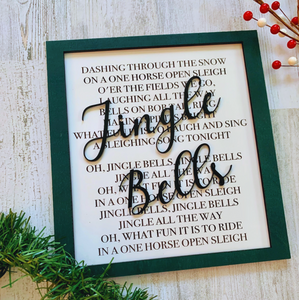 DASHING THROUGH THE SNOW
ON A ONE HORSE OPEN SLEIGH
O'ER THE FIELDS GO,
LAUGHING ALL THE WAY
BELLS ON
Jingle
AND SING
A SLEIGHING SONG TONIGHT
OH, JINGLE BELLS, JINGLE BELLS
JINGLE ALL THE WAY
OH, WHAT FUN RIDE
Bells
IN A ONE OPEN SLEIGH
JINGLE BELLS, JINGLE BELLS
JINGLE ALL THE WAY
OH, WHAT FUN IT IS TO RIDE
IN A ONE HORSE OPEN SLEIGH